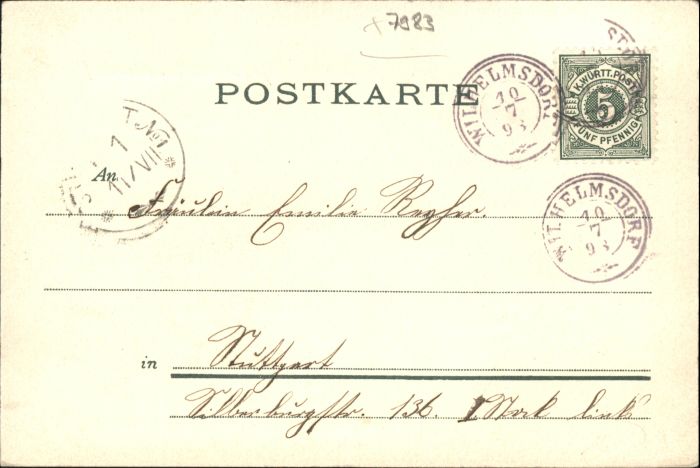 7983
POSTKARTE
K. WÜRTT. POST
5
FÜNF PFENNIG
WILHELMSDORF
10
7
93
WILHELMSDORF
10
7
93
T. No 1
1
11/VII
An
Fräulein Emilie
in
Stuttgart
Silberburgstr. 136. I Stock links